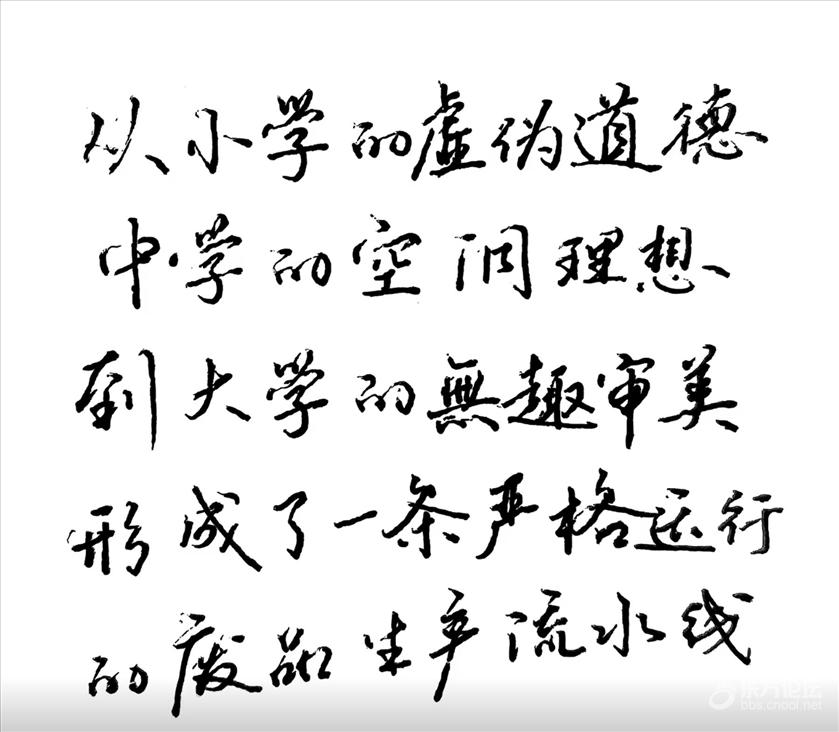 从小学的虚伪道德
中学的空洞理想
到大学的無趣审美
形成了一条严格运行
的废品生产流水线
东方论坛
bbs.cnool.net